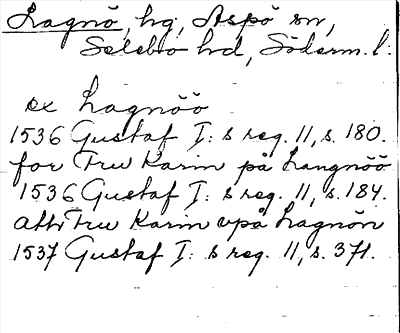 Lagnö, hg, Aspö sn,
Selebo hd, Söderm. l.
ex Lagnöö
1536 Gustaf I: s reg. 11, s. 180.
for Fru Karin på Langnöö
1536 Gustaf I: s reg. 11, s. 184.
att Fru Karin vpå Lagnön
1537 Gustaf I: s reg. 11, s. 371.